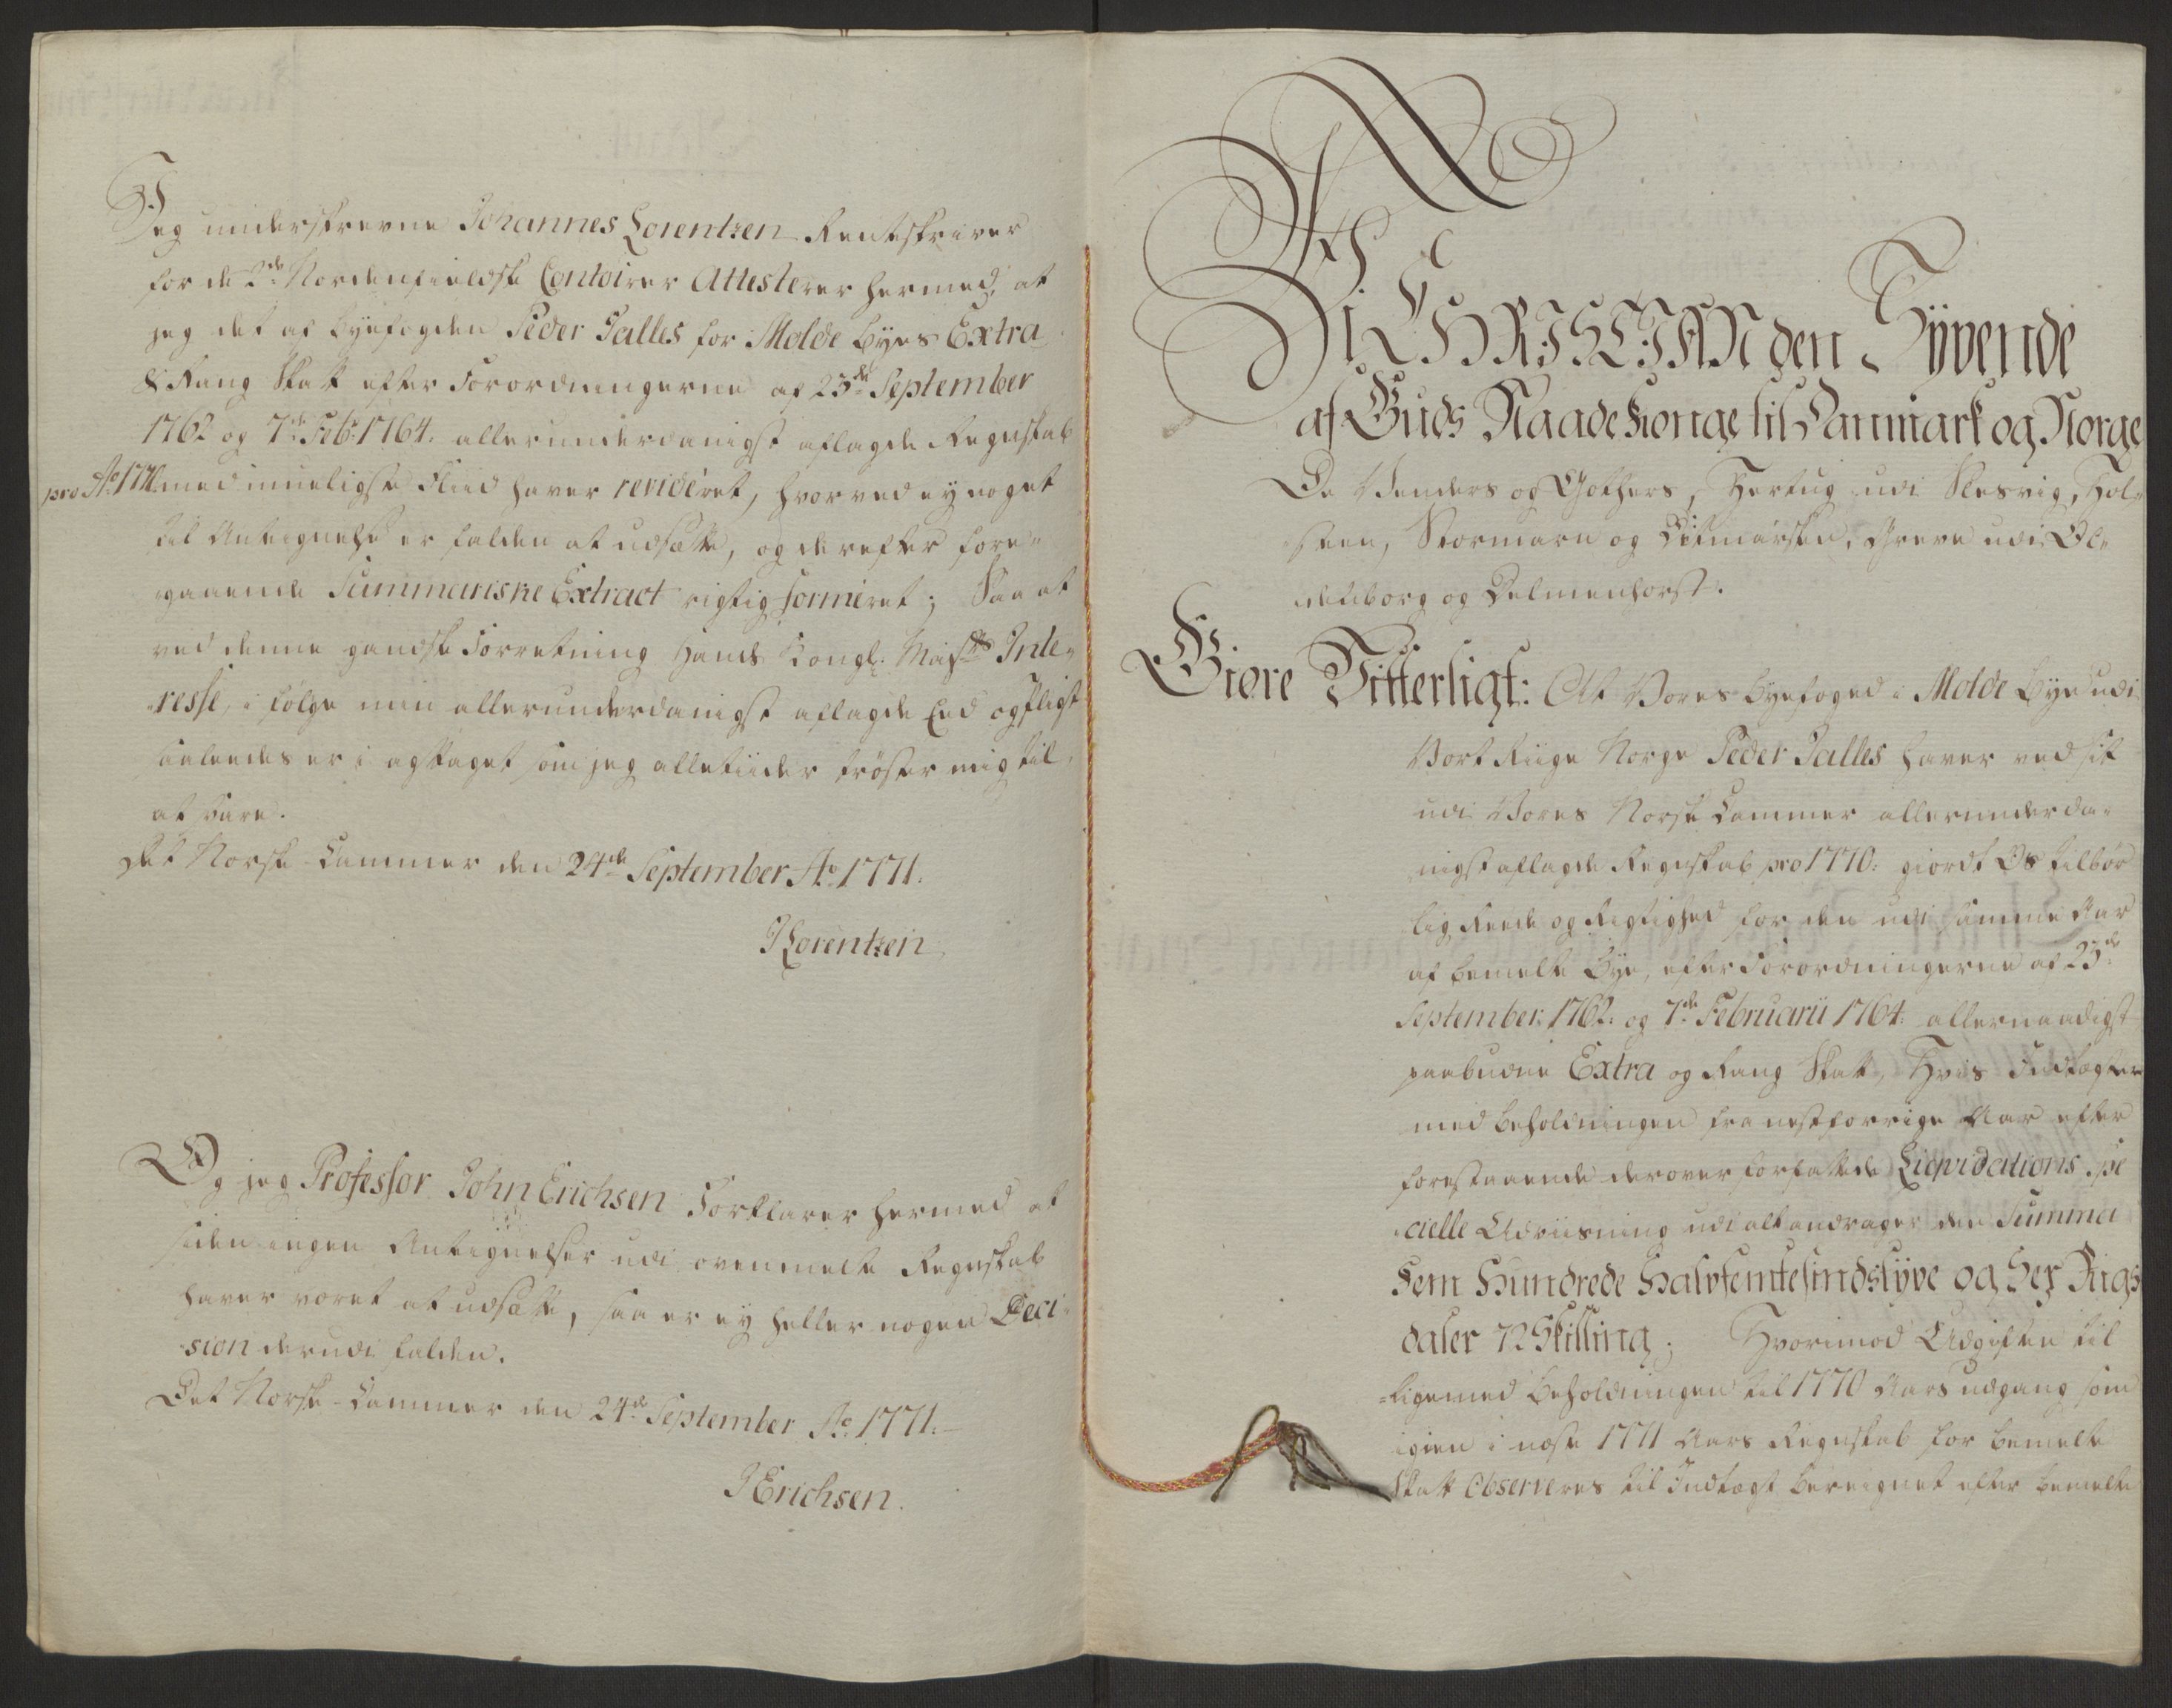 Jeg underskrevne Johannes Lorentzen Rentskriver
for de 2de Nordenfieldske Contoirer Attesterer hermed, at
jeg det af Byefogden Peder Salles for Molde Byes Extra
& Rang Skatt efter Forordningerne af 23de September
1762 og 7de Febr: 1764. allerunderdanigst aflagde Regnskab
pro Ao 1770 med mueligste Fliid haver revideret, hvorved ey noget
til Antegnelse er falden at udsætte, og derefter fore-
gaaende Summariske Extract rigtig formeret; Saa at
ved denne gandske Forretning Hans Kongl: Maj:ts Inte-
resse, i følge min allerunderdanigst aflagde Eed og Pligt
saaledes er i agttaget som jeg alletiider trøster mig til,
at svare.
Det Norske Cammer den 24de September Ao 1771.
JLorentzen
Og jeg Professor John Erichsen Forklarer hermed at
siden ingen Antegnelser udi ovenmelte Regnskab
haver været at udsætte, saa er ey heller nogen Deci-
sion derudi falden.
Det Norske Cammer den 24de September Ao 1771.
JErichsen.
Vi CHRISTIAN den Syvende
af Guds Naade Konge til Danmark og Norge
De Venders og Gothers, Hertug udi Slesvig, Hol-
steen, Stormarn og Ditmarsken, Greve udi Ol-
denborg og Delmenhorst.
Giøre Vitterligt: At Vores Byefoged i Molde Bye udi
Vort Riige Norge Peder Salles haver ved sit
udi Vores Norske Cammer allerunderda-
nigst aflagde Regnskab pro 1770: giordt Os tilbør
lig Reede og Rigtighed for den udi samme Aar
af bemelte Bye, efter Forordningerne af 23de
September 1762: og 7de Februarii 1764: allernaadigst
paabudne Extra og Rang Skatt, Hvis Indtægter
med Beholdningen fra nestforrige Aar efter
forestaaende derover forfattede Liqvidations spe
cielle Udviisning udi alt andrager den Summa
Fem Hundrede Halvfemtesindstyve og Sex Rigs
daler 72 Skilling; Hvorimod Udgiften til
ligemed Beholdningen til 1770 Aars udgang som
igien i næste 1771 Aars Regnskab for bemelte
Skatt Observeres til Indtægt beregnet efter bemelte